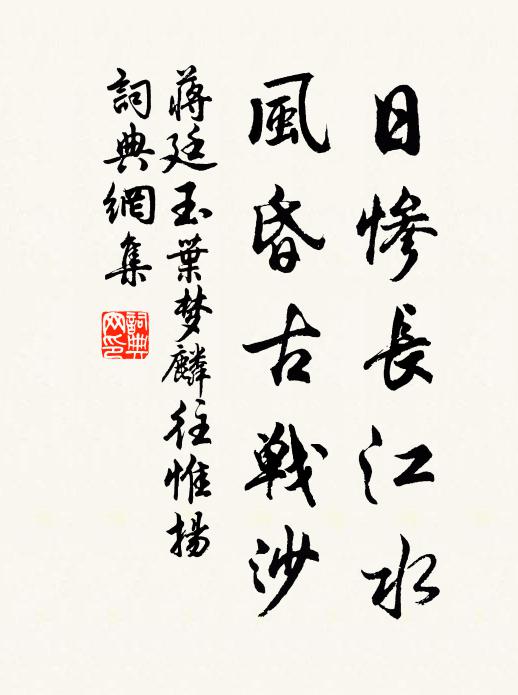 日慘長江水
風昏古戰沙
蔣廷玉葉梦麟往惟揚
詞典網集
詞典網印